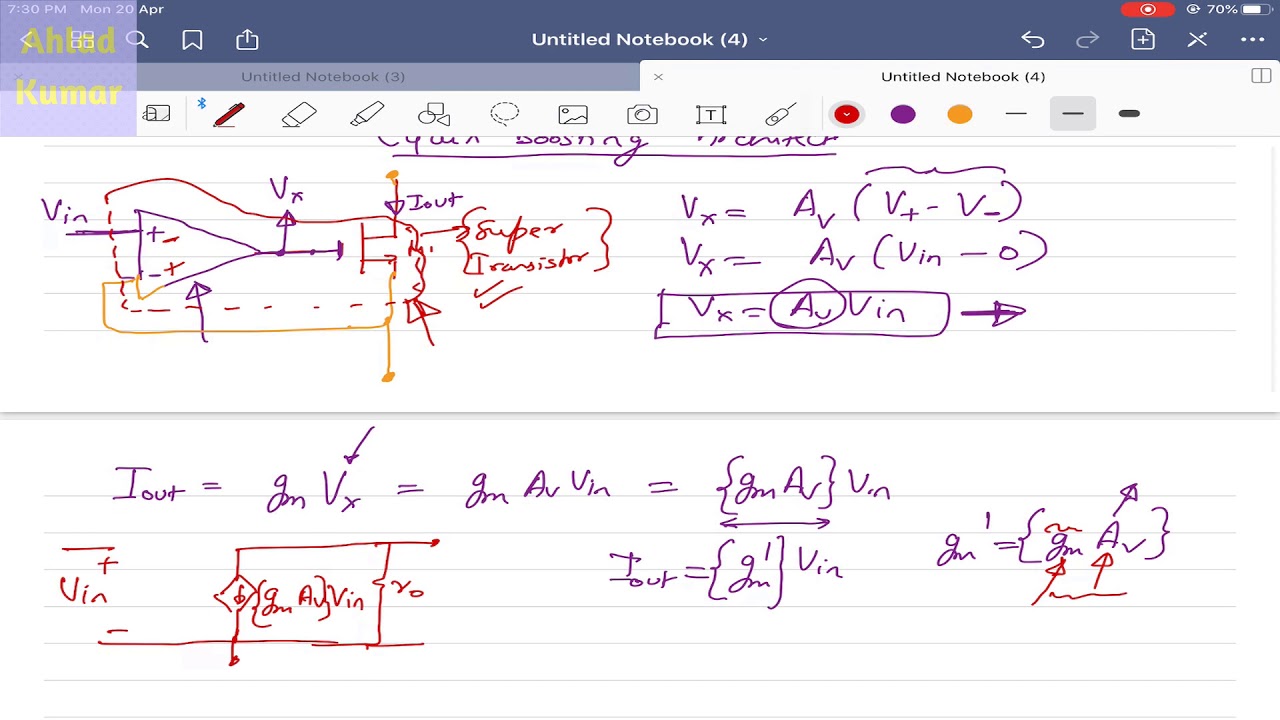 7:30 PM Mon 20 Apr
70%
Ahlad
Kumar
Untitled Notebook (4)
Untitled Notebook (3)
Untitled Notebook (4)
T
Boosting
Vin
Vx
Iout
+ -
- +
{Super
Transistor}
Vx = Av (V+ - V-)
Vx = Av (Vin - 0)
Vx = Av Vin
Iout = gm Vx = gm Av Vin = {gm Av} Vin
gm' = {gm Av}
Iout = {gm'} Vin
+
Vin
-
{gm Av} Vin
ro